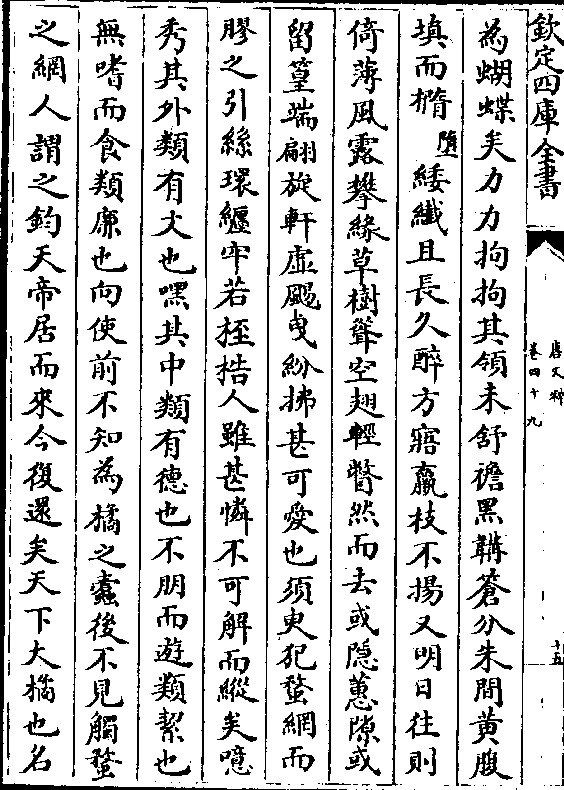 欽定四庫全書
唐文粹
卷四十九
十五
為蝴蝶矣力力拘拘其領未舒襜黑韝蒼分朱間黄腹
填而橢墮緌纎且長久醉方寤羸枝不揚又明日往則
倚薄風露攀緣草樹聳空翅輕瞥然而去或隐蕙隙或
留篁端翩旋軒虚颺曳紛拂甚可愛也須臾犯蝥網而
膠之引絲環纒牢若桎梏人雖甚憐不可解而縱矣噫
秀其外類有文也嘿其中類有德也不朋而遊類絜也
無嗜而食類亷也向使前不知為橘之蠧後不見觸蝥
之網人謂之鈞天帝居而來今復還矣天下大橘也名